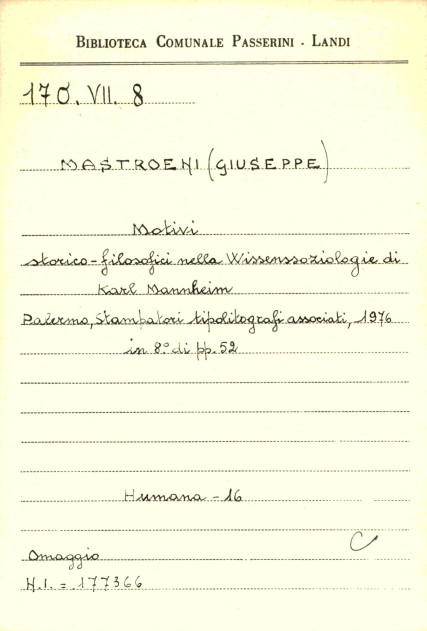 BIBLIOTECA COMUNALE PASSERINI - LANDI
170. VII. 8
MASTROENI (GIUSEPPE)
Motivi
storico-filosofici nella Wissenssoziologie di
Karl Mannheim
Palermo, Stampatori tipolitografi associati, 1976
in 8.° di pp. 52
Humana - 16
C
Omaggio
N.I. = 177366